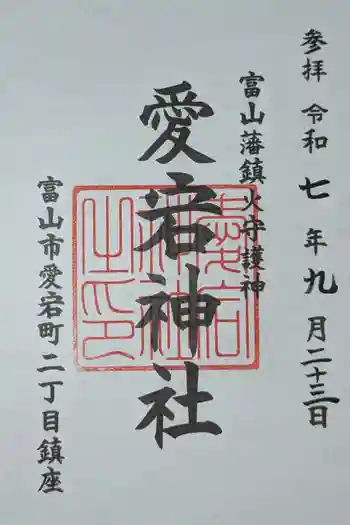 参拝 令和七年九月二十三日
富山藩鎮火守護神
愛宕神社
富山市愛宕町二丁目鎮座
愛宕神社之印